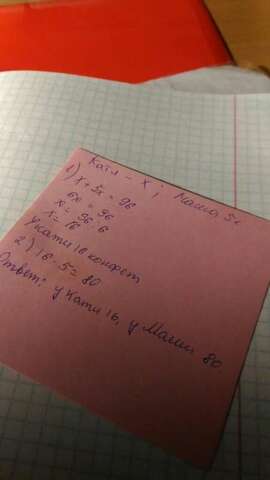 Катя - x; Маша 5x
1) x + 5x = 96
6x = 96
x = 96 : 6
x = 16
У Кати 16 конфет
2) 16 · 5 = 80
Ответ: у Кати 16, у Маши 80.